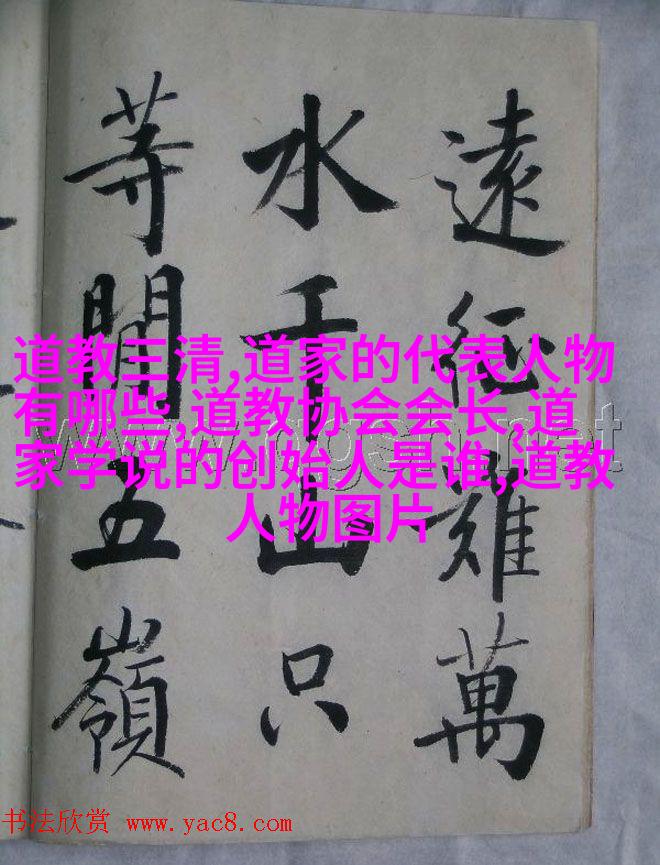 遠征難萬
水千山只
等閒五嶺
道教三清,道家的代表人物
有哪些,道教协会会长,道
家学说的创始人是谁,道教
人物图片
书法欣赏 www.yac8.com